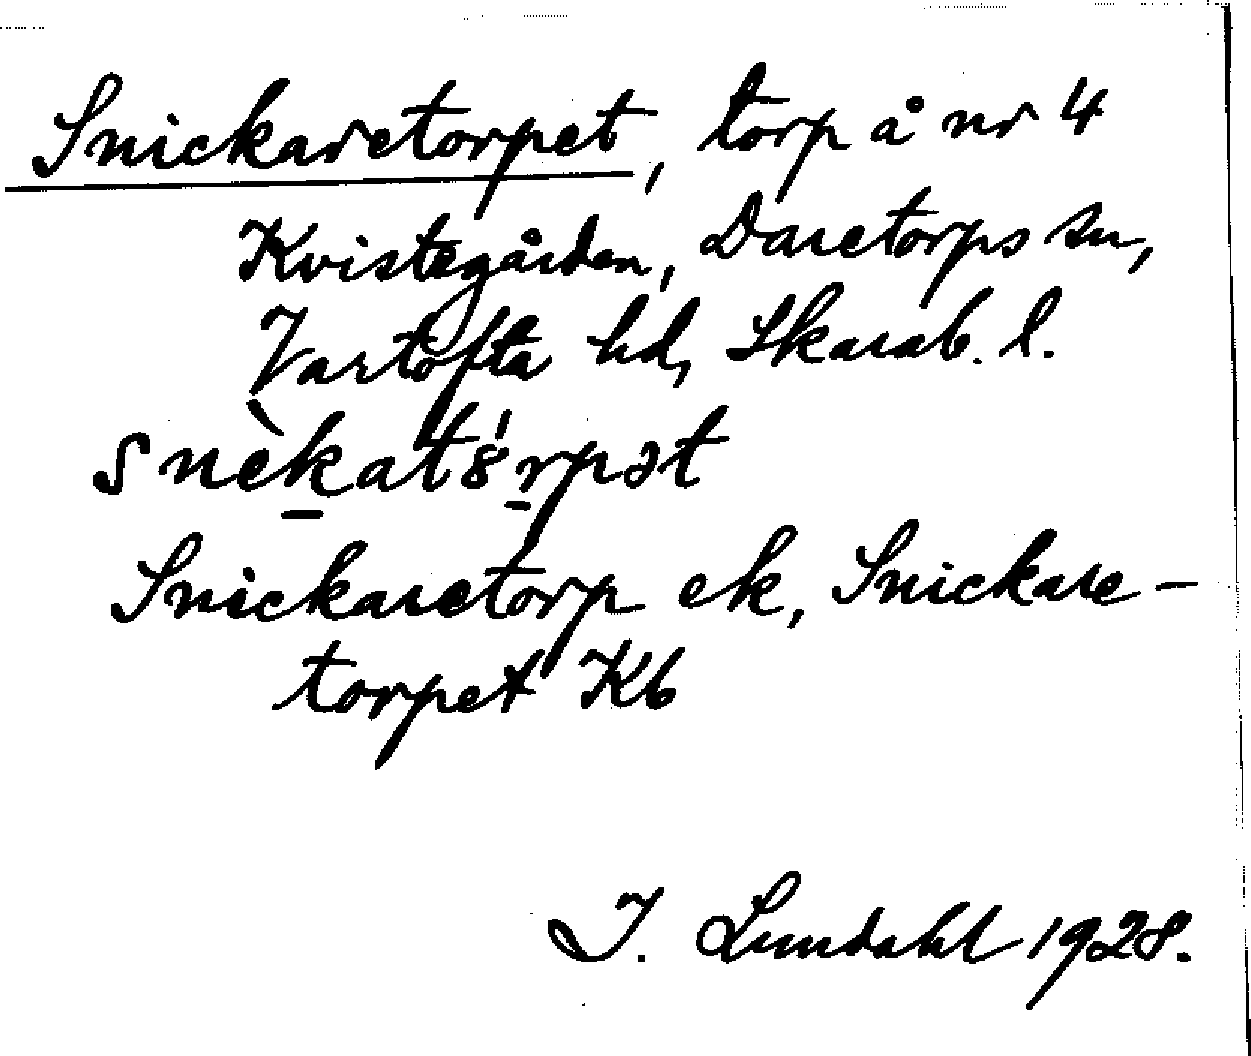 Snickaretorpet, torp å nr 4
Kvistegården, Daretorps sn,
Vartofta hd, Skarab. l.
snèkat8́rpət
Snickaretorp ek, Snickare-
torpet Kb
I. Lundahl 1928.